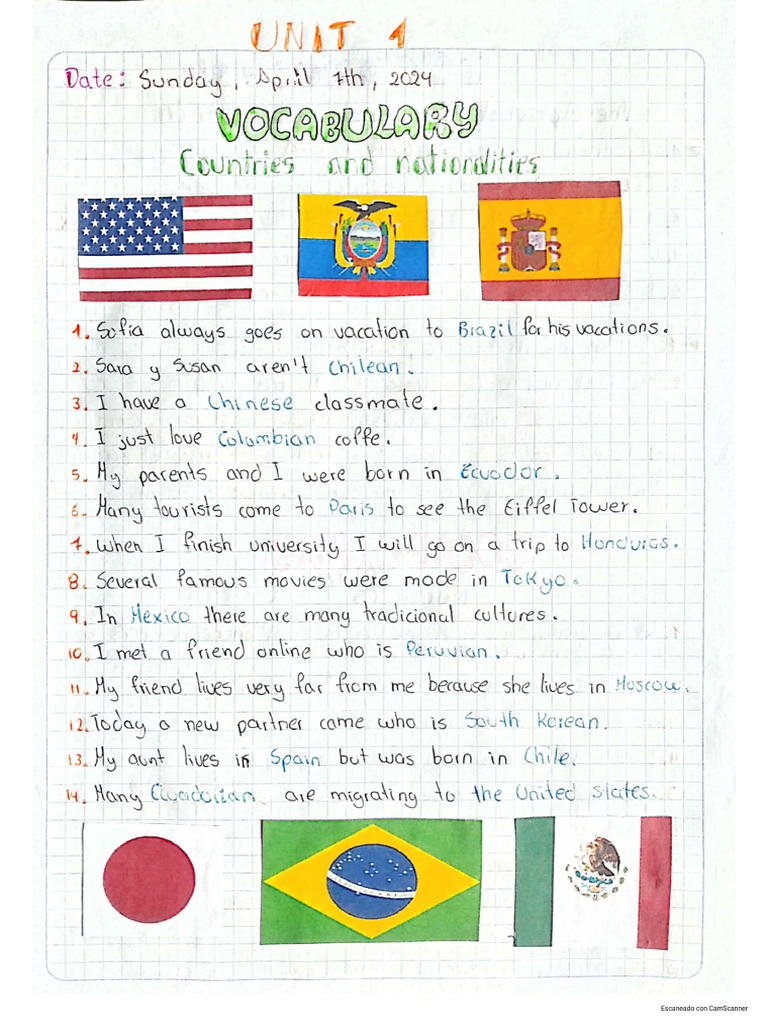 UNIT 1
Date: Sunday, April 7th, 2024
VOCABULARY
Countries and nationalities
1. Sofia always goes on vacation to Brazil for his vacations.
2. Sara y Susan aren't Chilean.
3. I have a Chinese classmate.
4. I just love Colombian coffe.
5. My parents and I were born in Ecuador.
6. Many tourists come to Paris to see the Eiffel Tower.
7. When I finish university I will go on a trip to Honduras.
8. Several famous movies were made in Tokyo.
9. In Mexico there are many tradicional cultures.
10. I met a friend online who is Peruvian.
11. My friend lives very far from me because she lives in Moscow.
12. Today a new partner came who is South Korean.
13. My aunt lives in Spain but was born in Chile.
14. Many are migrating to the United States.
Escaneado con CamScanner